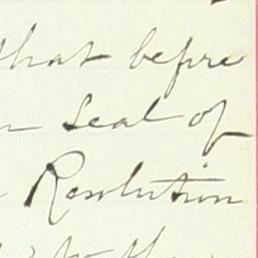 that before
Seal of
Resolution